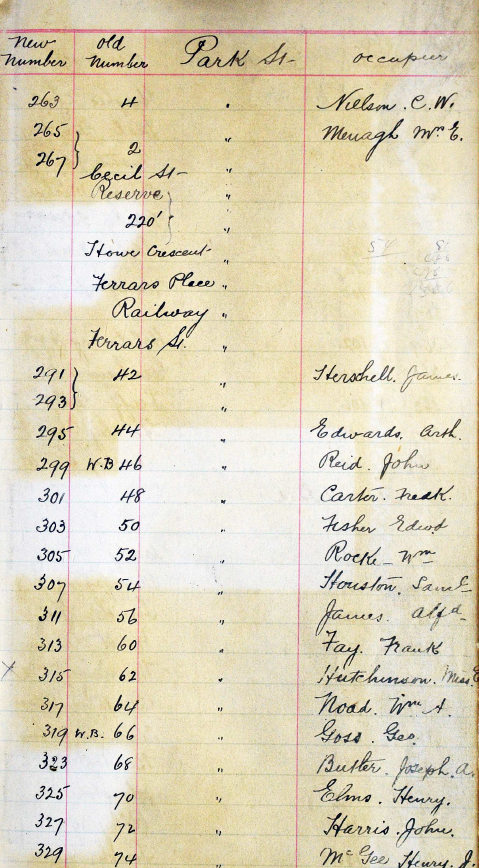 New Number Old Number Park St. Occupier
263 4 " Nielson. C. W.
265 " Menagh Mrs E.
267 } 2
Cecil St- "
Reserve "
220' } "
Howe Crescent- "
Ferrars Place "
Railway "
Ferrars St. "
291 } 42 " Herschell. James.
293 "
295 44 " Edwards. Arth.
299 W.B 46 " Reid. John
301 48 " Carter. Fredk.
303 50 " Fisher Edwd
305 52 " Rocke- Wm
307 54 " Houston. Saml
311 56 " James. Alfd
313 60 " Fay. Frank
x 315 62 " Hutchinson. Miss E
317 64 " Noad. Wm A.
319 W.B. 66 " Goss. Geo.
323 68 " Butler. Joseph. A.
325 70 " Elms. Henry.
327 72 " Harris. John.
329 74 " McGee Henry. J.